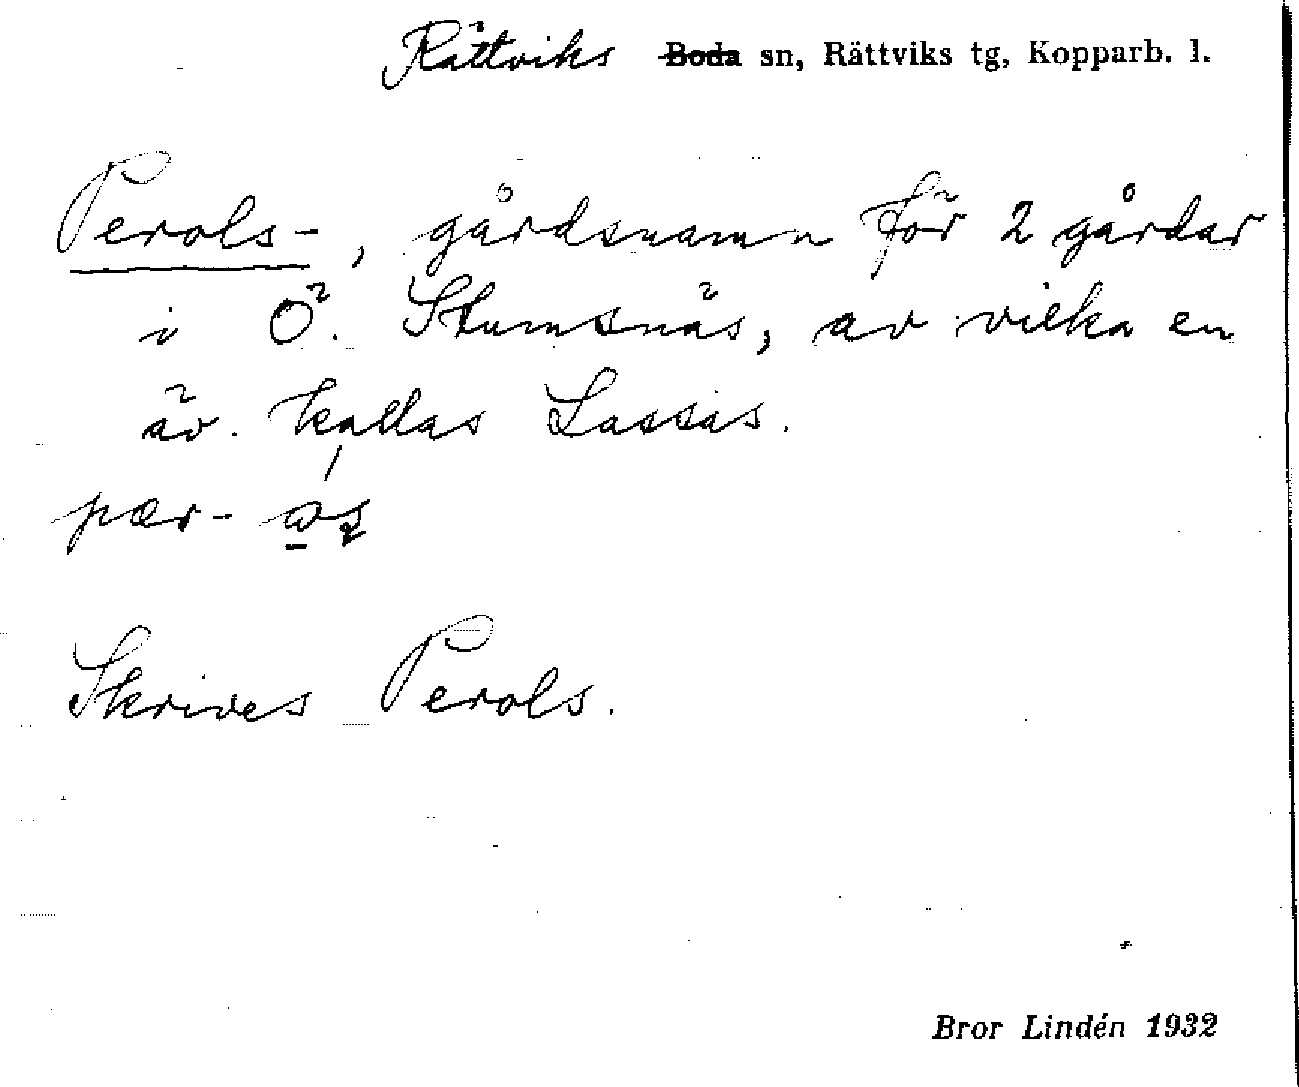 Rättviks Boda sn, Rättviks tg, Kopparb. l.
Perols-, gårdsnamn för 2 gårdar
i Ö. Stumsnäs, av vilka en
äv. kallas Lassas.
pær-
Skrives Perols.
Bror Lindén 1932